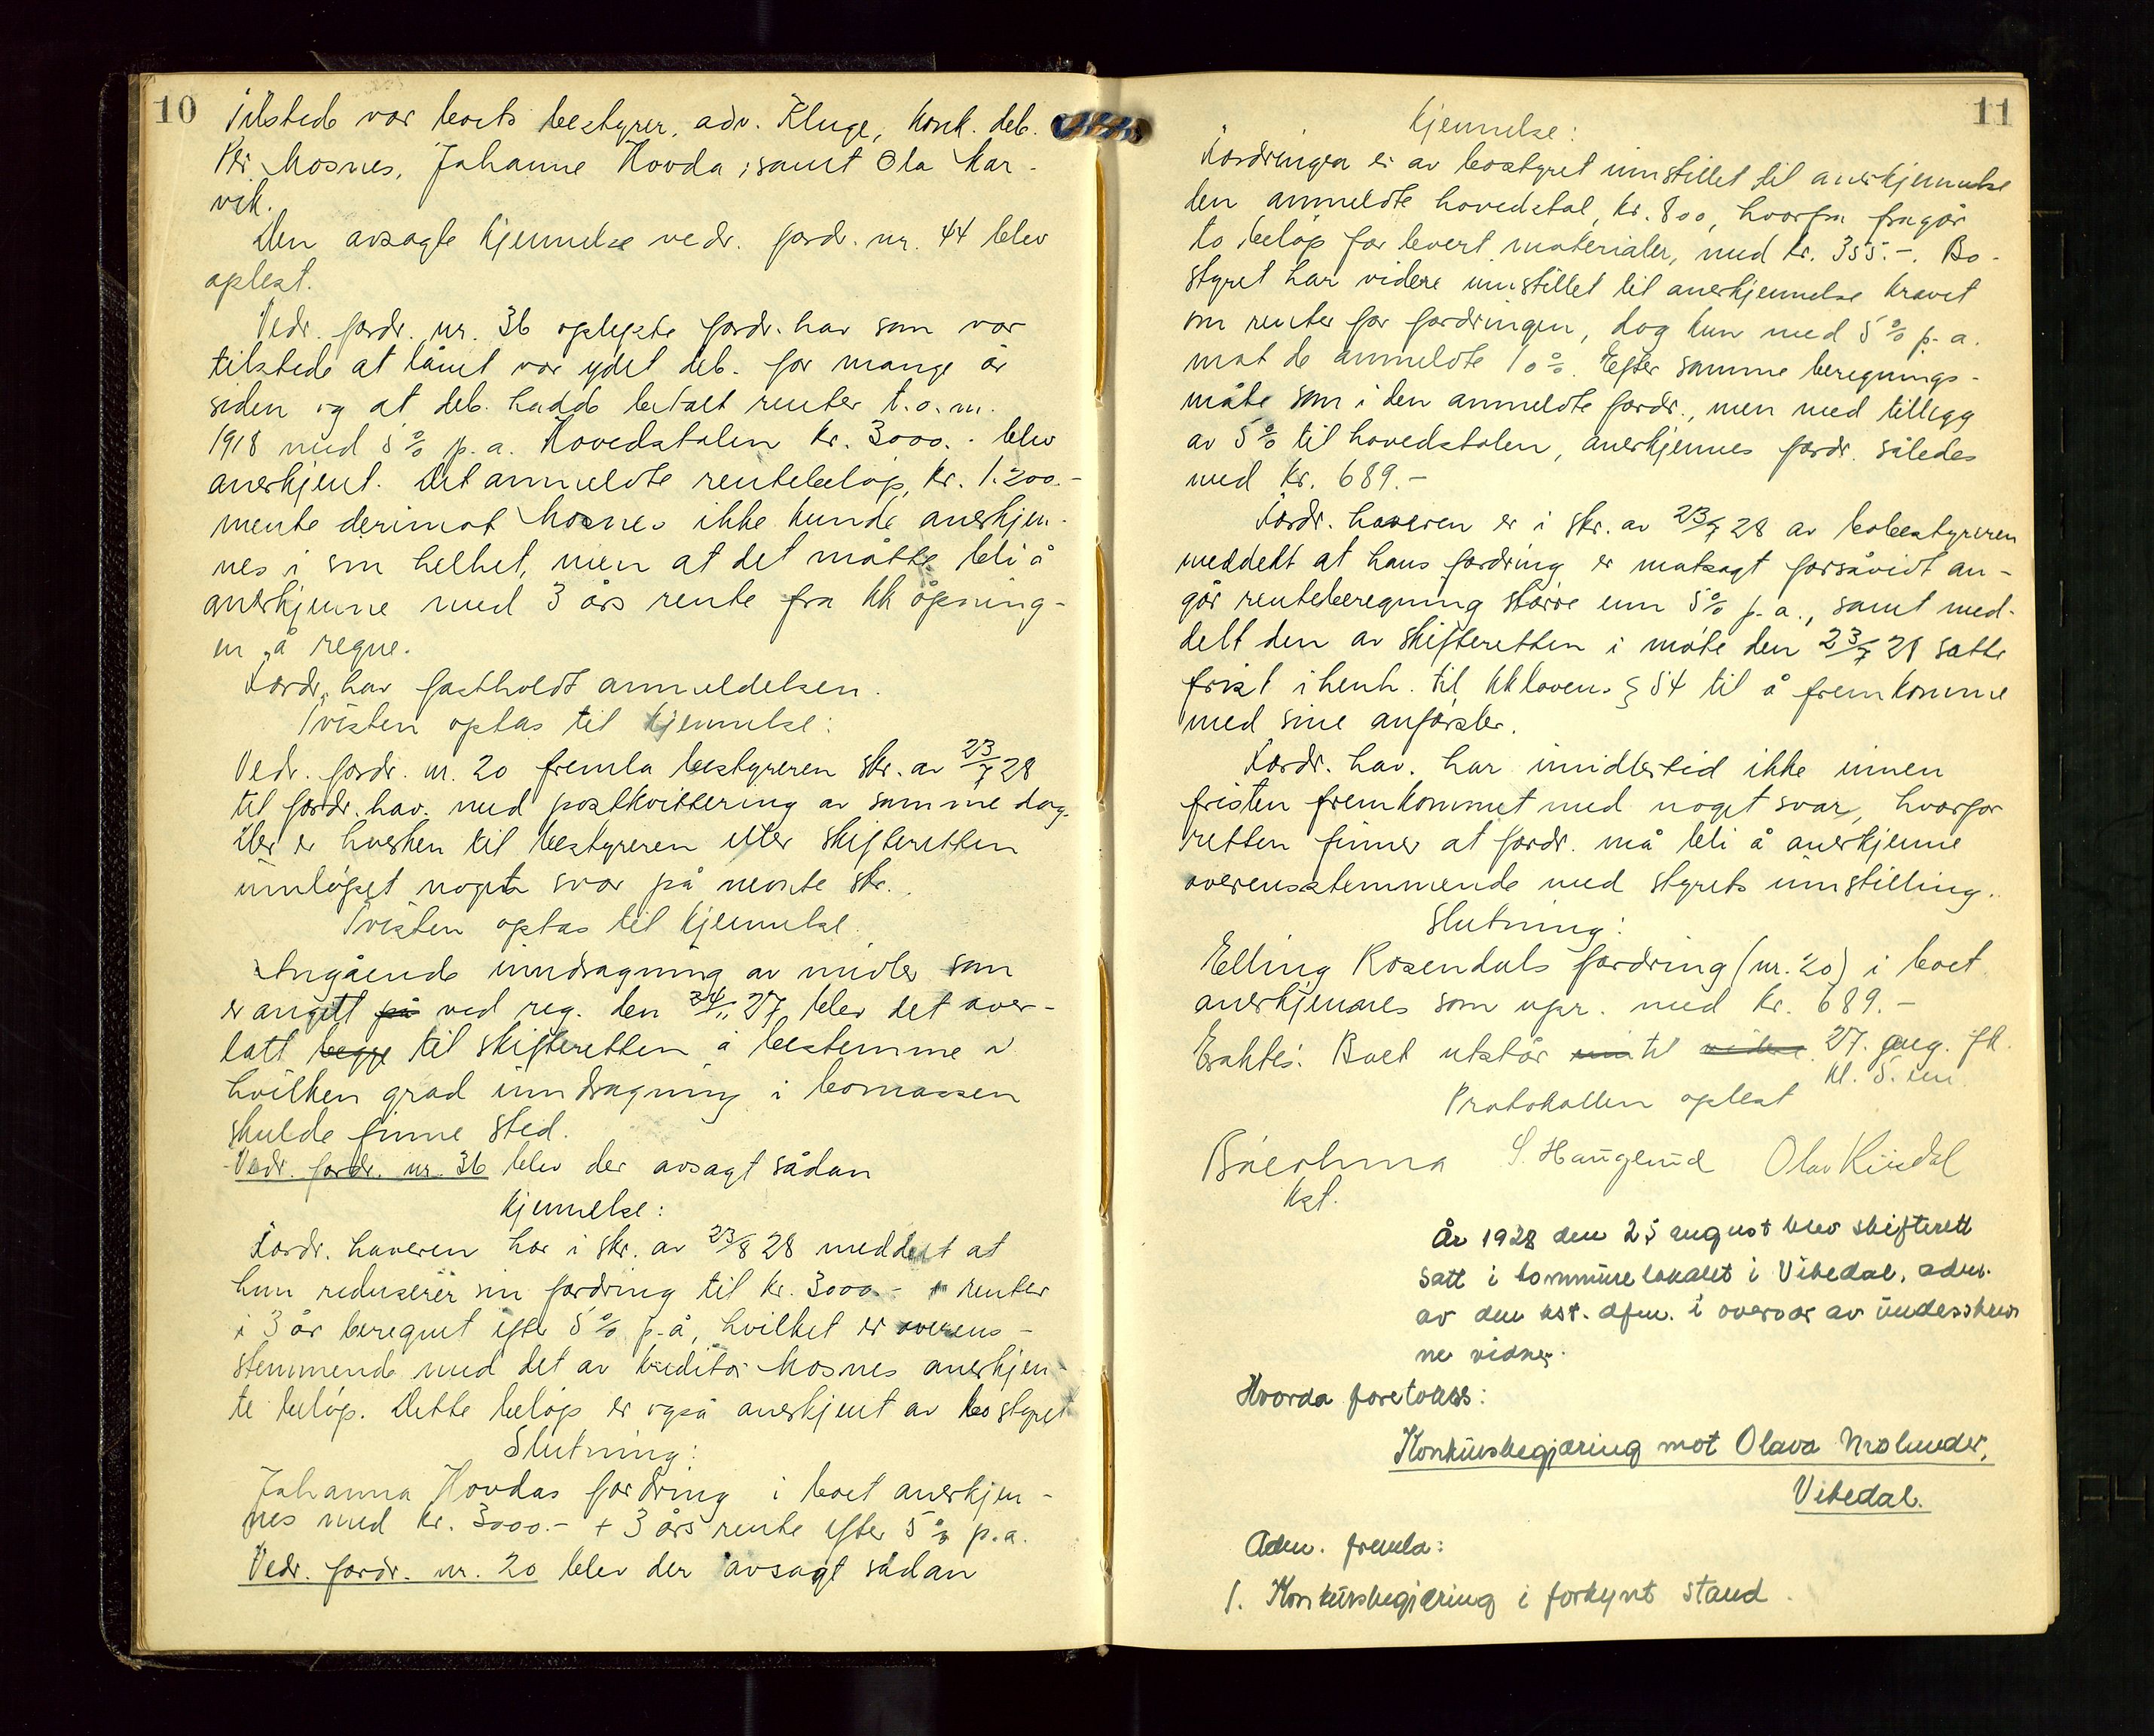 10
Tilstede var boets bestyrer, adv. Kluge, konk. deb.
Per Mosnes, Johanne Hovda, samt Ola Mar-
vik.
Den avsagte kjennelse vedr. fordr. nr. 44 blev
oplest.
Vedr. fordr. nr. 36 oplyste fordr. hav som var
tilstede at lånet var ydet deb. for mange år
siden og at deb. hadde betalt renter t.o.m.
1918 med 5 % p.a. Hovedstolen kr. 3000.- blev
anerkjent. Det anmeldte rentebeløp, kr. 1.200.-
mente derimot Mosnes ikke kunde anerkjen-
nes i sin helhet, men at det måtte bli å
anerkjenne med 3 års rente fra kk åpning-
en å regne.
Fordr. hav fastholdt anmeldelsen.
Tvisten optas til kjennelse:
Vedr. fordr. nr. 20 fremla bestyreren skr. av 23/7 28
til fordr. hav. med postkvittering av samme dag.
Der er hverken til bestyreren eller skifteretten
innløpet noget svar på nevnte skr.
Tvisten optas til kjennelse.
Angående inndragning av midler som
er angitt på ved reg. den 24/11 27 blev det over-
latt begge til skifteretten å bestemme i
hvilken grad inndragning i bomassen
skulde finne sted.
Vedr. fordr. nr. 36 blev der avsagt sådan
kjennelse:
Fordr. haveren har i skr. av 23/8 28 meddelt at
hun reduserer sin fordring til kr. 3000.- + renter
i 3 år beregnet efter 5 % p.å, hvilket er overens-
stemmende med det av kreditor Mosnes anerkjen-
te beløp. Dette beløp er også anerkjent av bostyret
Slutning:
Johanna Hovdas fordring i boet anerkjen-
nes med kr. 3000.- + 3 års rente efter 5 % p.a.
Vedr. fordr. nr. 20 blev der avsagt sådan
11
kjennelse:
Fordringen er av bostyret innstillet til anerkjennelse
den anmeldte hovedstol, kr. 800, hvorfra fragår
to beløp for levert materialer, med kr. 355.-. Bo-
styret har videre innstillet til anerkjennelse kravet
om renter for fordringen, dog kun med 5 % p.a.
mot de anmeldte 10 %. Efter samme beregnings-
måte som i den anmeldte fordr., men med tillegg
av 5 % til hovedstolen, anerkjennes fordr. således
med kr. 689.-
Fordr. haveren er i skr. av 23/7 28 av bobestyreren
meddelt at hans fordring er motsagt forsåvidt an-
går renteberegning større enn 5 % p.a., samt med-
delt den av skifteretten i møte den 23/7 28 satte
frist i henh. til kkloven. § 54 til å fremkomme
med sine anførsler.
Fordr. hav. har imidlertid ikke innen
fristen fremkommet med noget svar, hvorfor
retten finner at fordr. må bli å anerkjenne
overensstemmende med styrets innstilling.
Slutning:
Elling Rosendals fordring (nr. 20) i boet
anerkjennes som upr. med kr. 689.-
Esktes: Boet utstår til 27. aug. fk.
kl. 5. em.
Protokollen oplest
S. Hauglund Olav Kindal
kst.
År 1928 den 25 august blev skifterett
satt i kommunelokalet i Vikedal, adm.
av den kst. dfm. i overvær av underskrev
ne vidner.
Hvorda foretokes:
Konkursbegjæring mot Olava Mølunder,
Vikedal.
Adm. fremla:
1. Konkursbegjæring i forkynt stand.